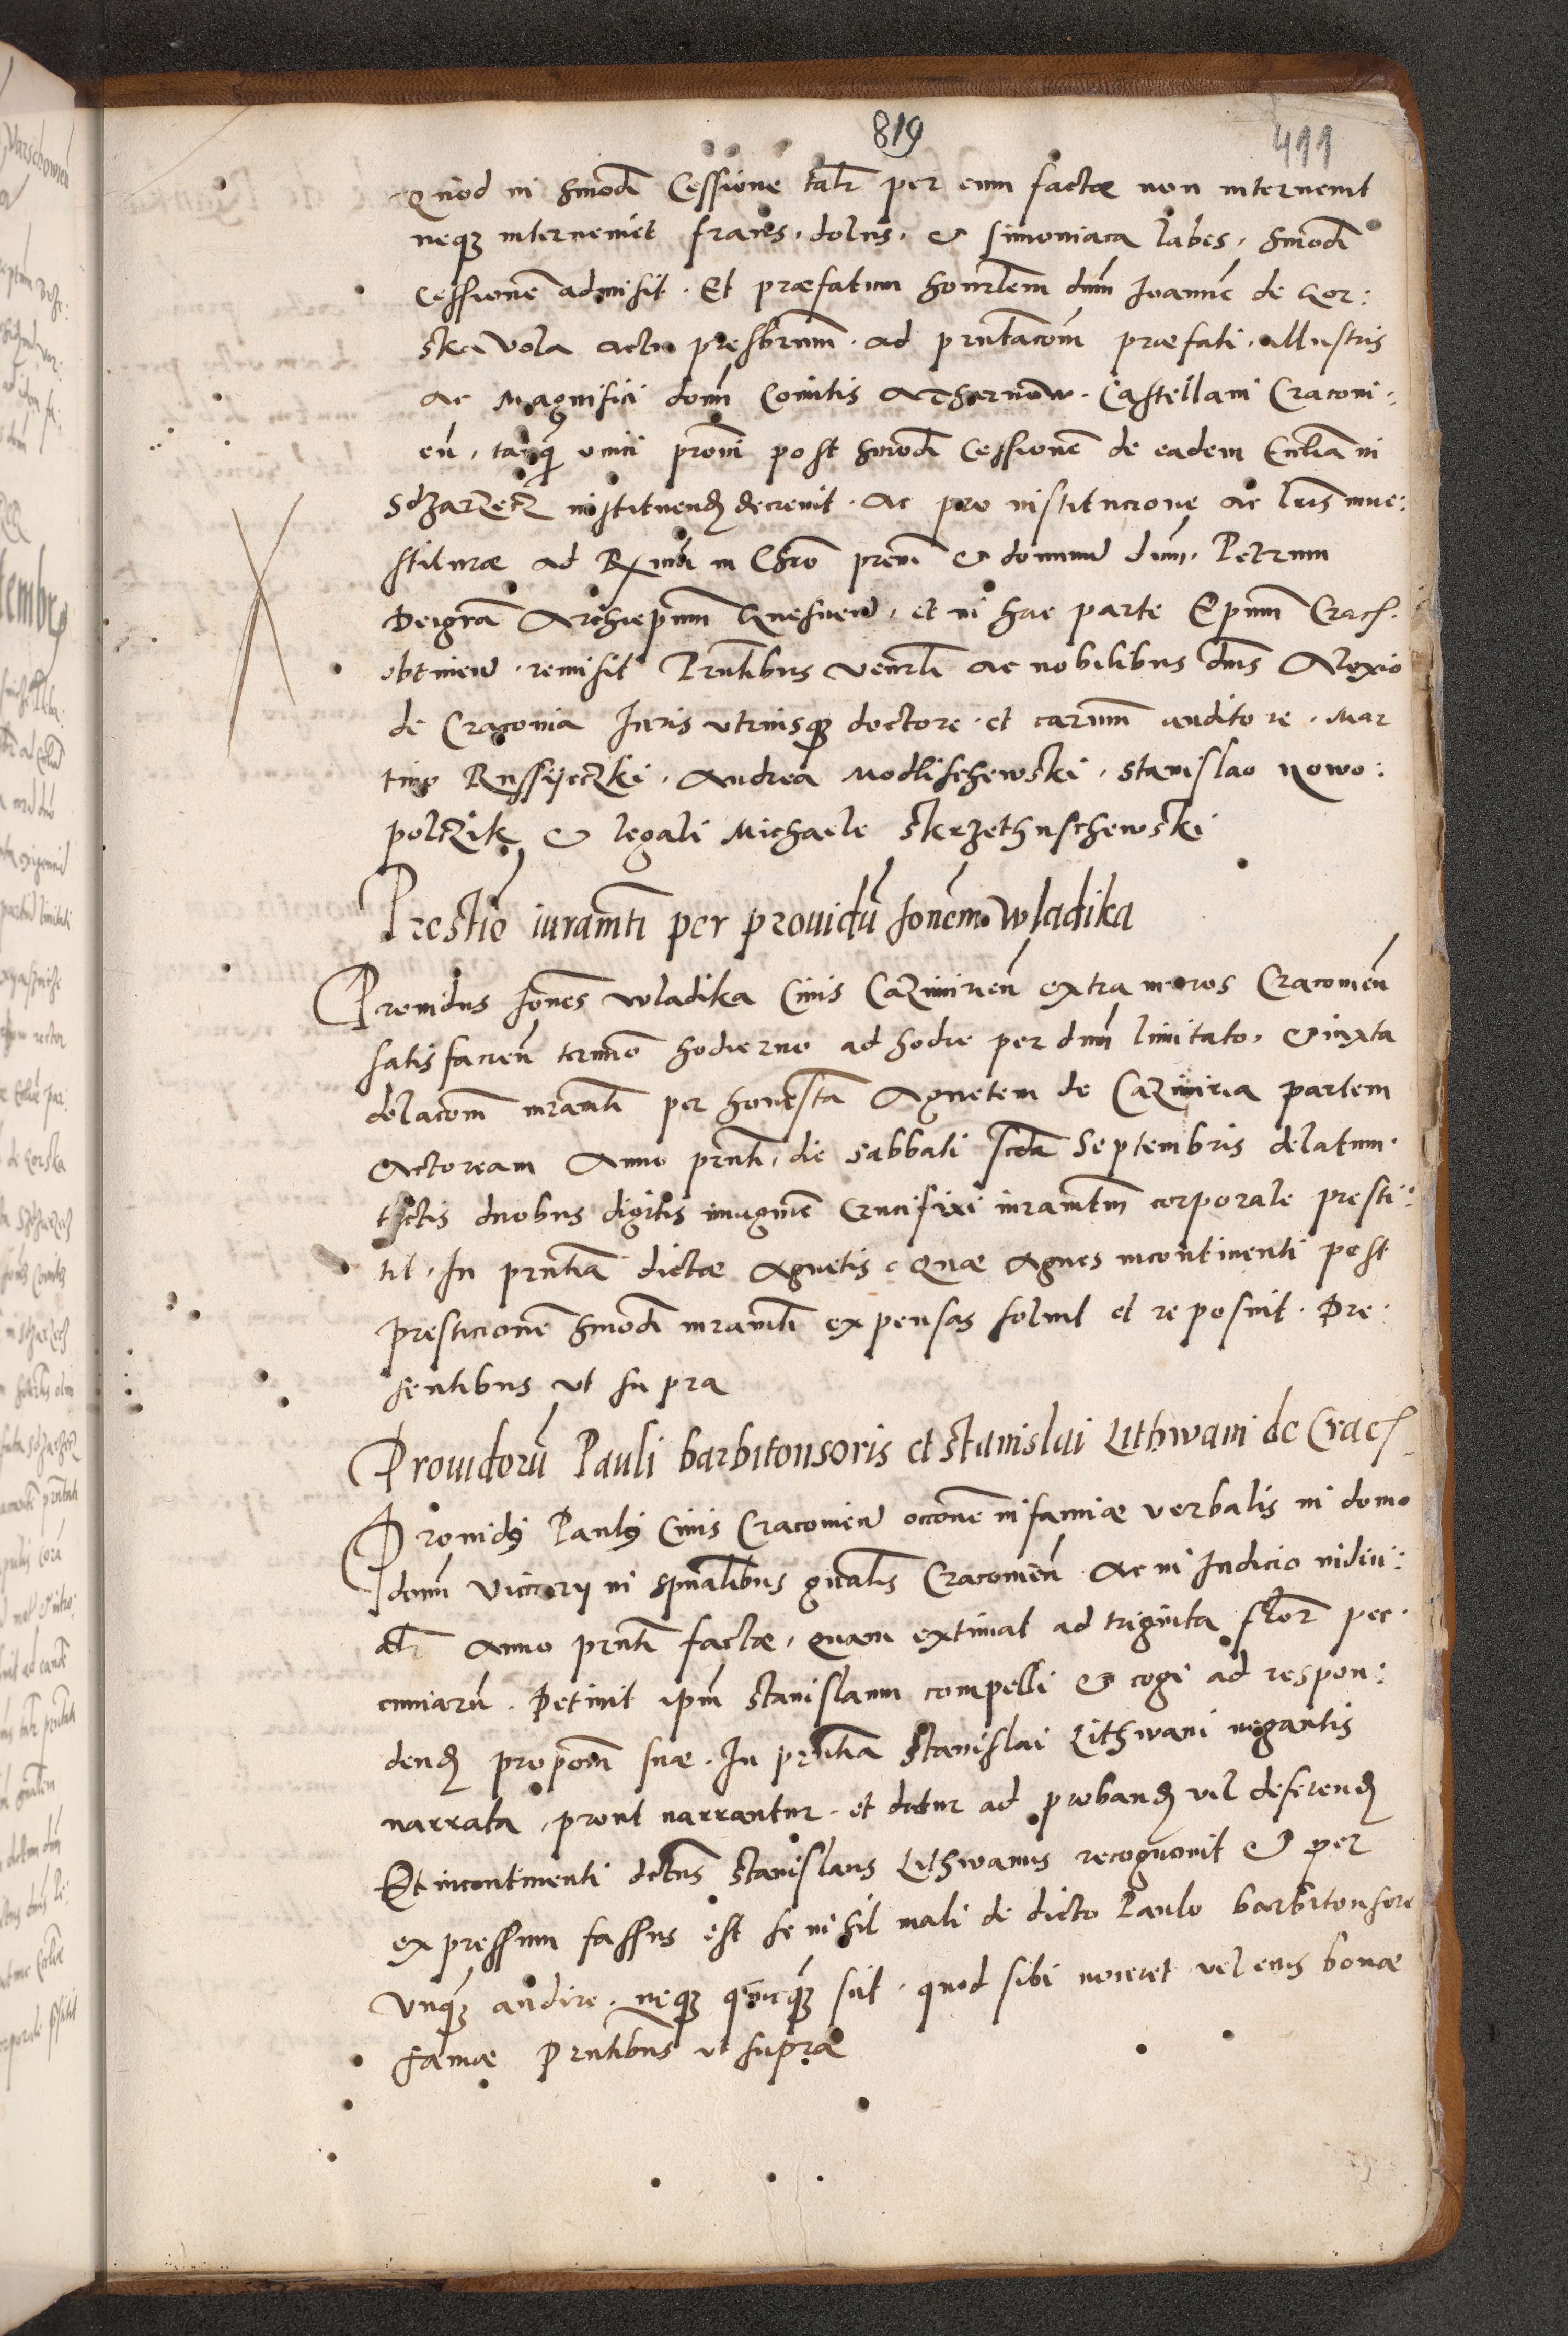 819
411
Quod in hmodi Cessione talr per eum factae non intervenit
neque interveniet fraus, dolus, & simoniaca labes, hmodi
Cessionē admisit. Et praefatum honrlem dnm Joannē de Gor:
ska vola actu presbrum. ad pntacoem praefati. illustris
ac Magnifici domi Comitis a Tharnow. Castellani Cracovi:
eñ, tanq̄ unici provi post hmodi Cessionē de eadem Ecclia in
Sdzarzecz instituendū decrevit. ac pro institucione ac lris inve:
stiturae ad Rxmū in Chro prem & dominū dnm. Petrum
Dei gra Archiepum Gnesneñ, et in hac parte Epum Crac.
obtineñ. remisit Pntibus Venrli ac nobilibus dnis Alexio
de Cracovia Juris utriusque doctore. et carum auditore. Mar
tino Russijeczki. Andrea Modlischewski. Stanislao Nowo:
polczik & legali Michaele Skrzethuschewski
Prestio iuramti per providū Jonēm Wladika
Providus Jones Wladika Civis Cazimirieñ extra muros Cracovieñ
satisfacieñ termo hodierno ad hodie per dnm limitato. & iuxta
delacoem iuramti per honestā Agnetem de Cazimiria partem
actoream Anno pnti, die Sabbati scda Septembris delatum.
tactis duobus digitis imaginē Crucifixi iuramtm corporale presti:
tit. In pntia dictae Agnetis. Quae Agnes incontinenti post
presticionē hmodi iuramti expensas solvit et reposuit. Pre:
sentibus ut supra
Providorū Pauli barbitonsoris et Stanislai Lithwani de Crac
Providꝰ Paulꝰ Civis Cracovieñ occone infamiae verbalis in domo
domi Victorij in spualibus gnalis Cracovieñ. Ac in Judicio indui:
alr Anno pnti factae, quam extimat ad triginta flor pec:
cuniarū. Petivit ipm Stanislaum compelli & cogi ad respon:
dendū propom suae. In pntia Stanislai Lithwani negantis
narrata, prout narrantur. et datur ad probandū vel deferendū
Et incontinenti dictus Stanislaus Lithwanus recognovit & per
expressum fassus est se nihil mali de dicto Paulo barbitonsore
Unq̄ audire. neque quicq̄ scit. quod sibi noceret vel eius bonae
famae Pntibus ut supra